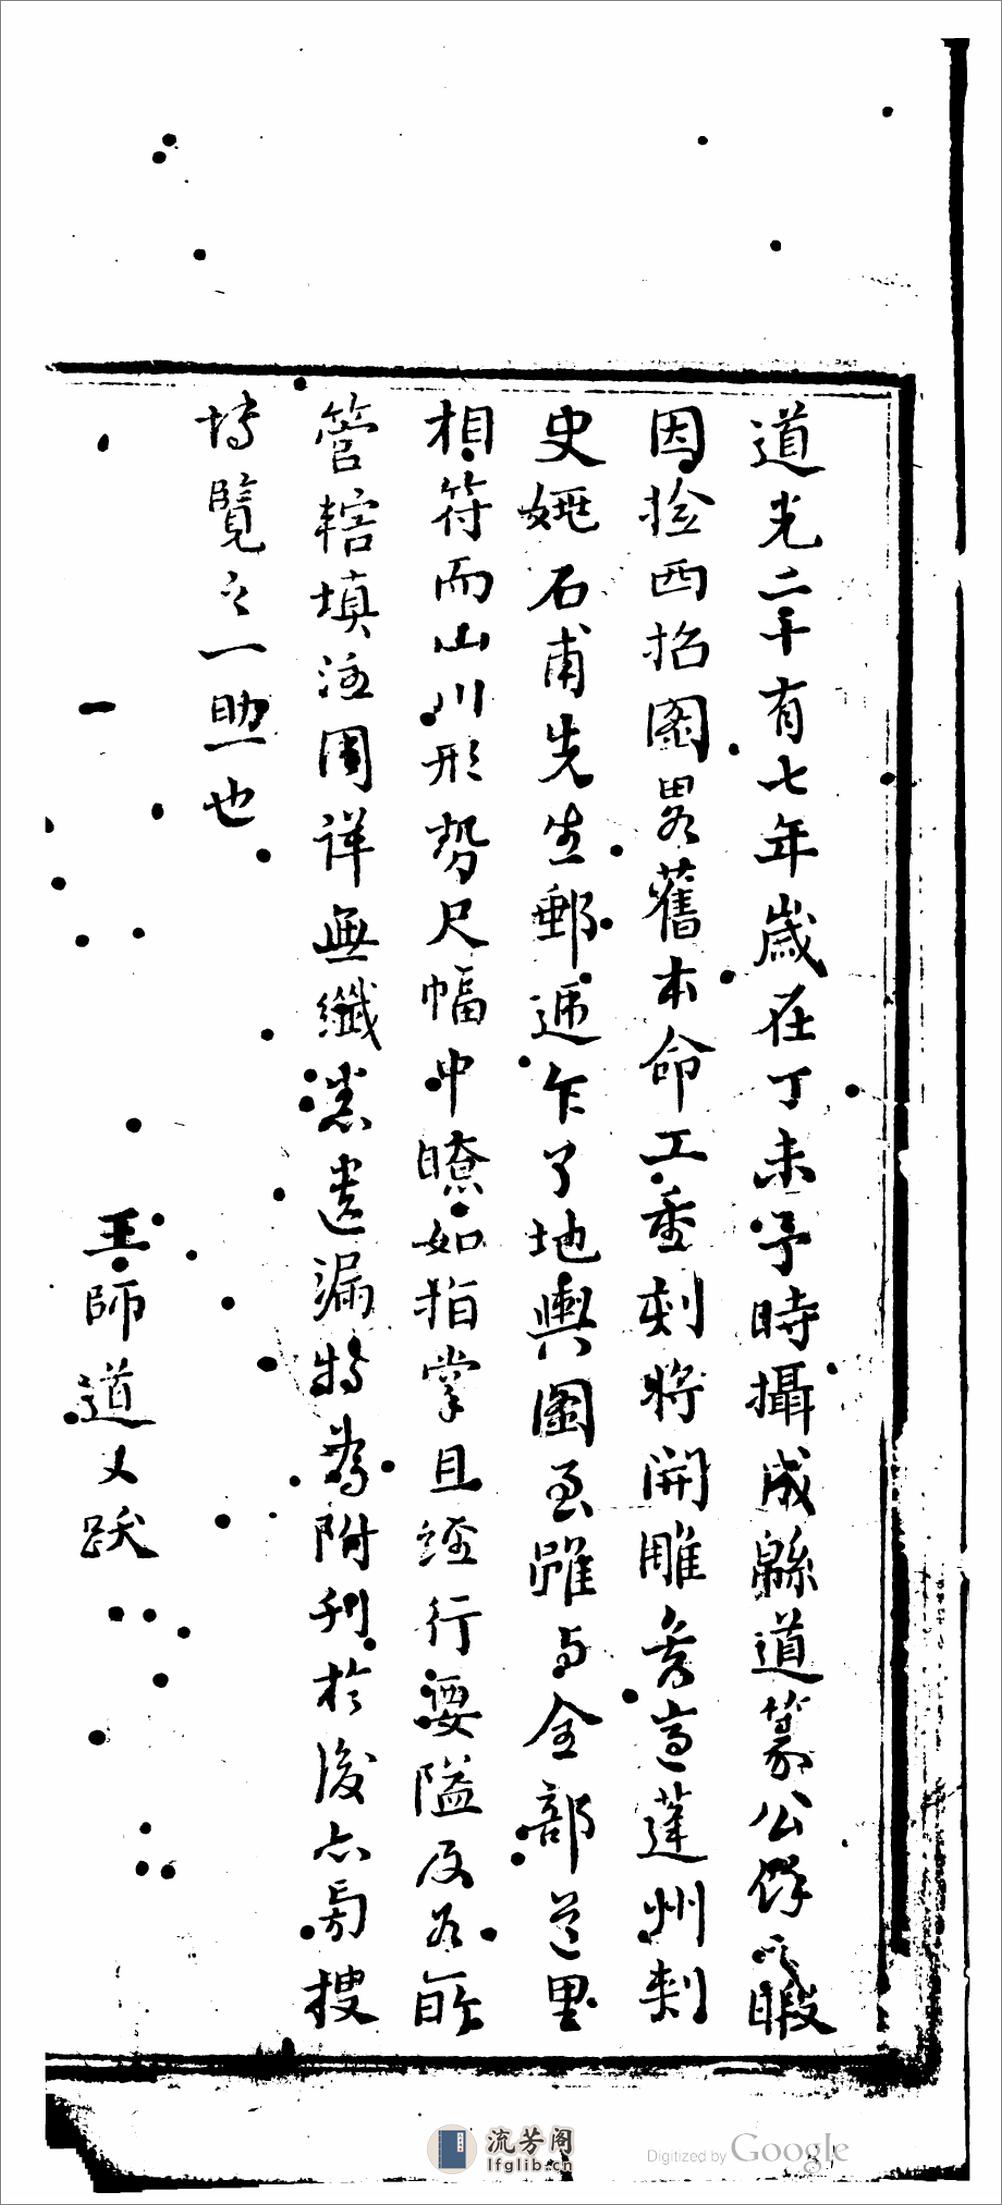 道光二十有七年歲在丁未予時攝成緜道篆公餘之暇
因撿西招圖畧舊本命工重刻將開雕矣適蓬州刺
史姚石甫先生郵遞乍了地輿圖至雖與全部道里
相符而山川形勢尺幅中瞭如指掌且經行要隘及各所
管轄填注周詳無纖悉遺漏特為附刊於後亦蒭搜
博覽之一助也
王師道又跋
流芳阁
lfglib.cn
Digitized by Google